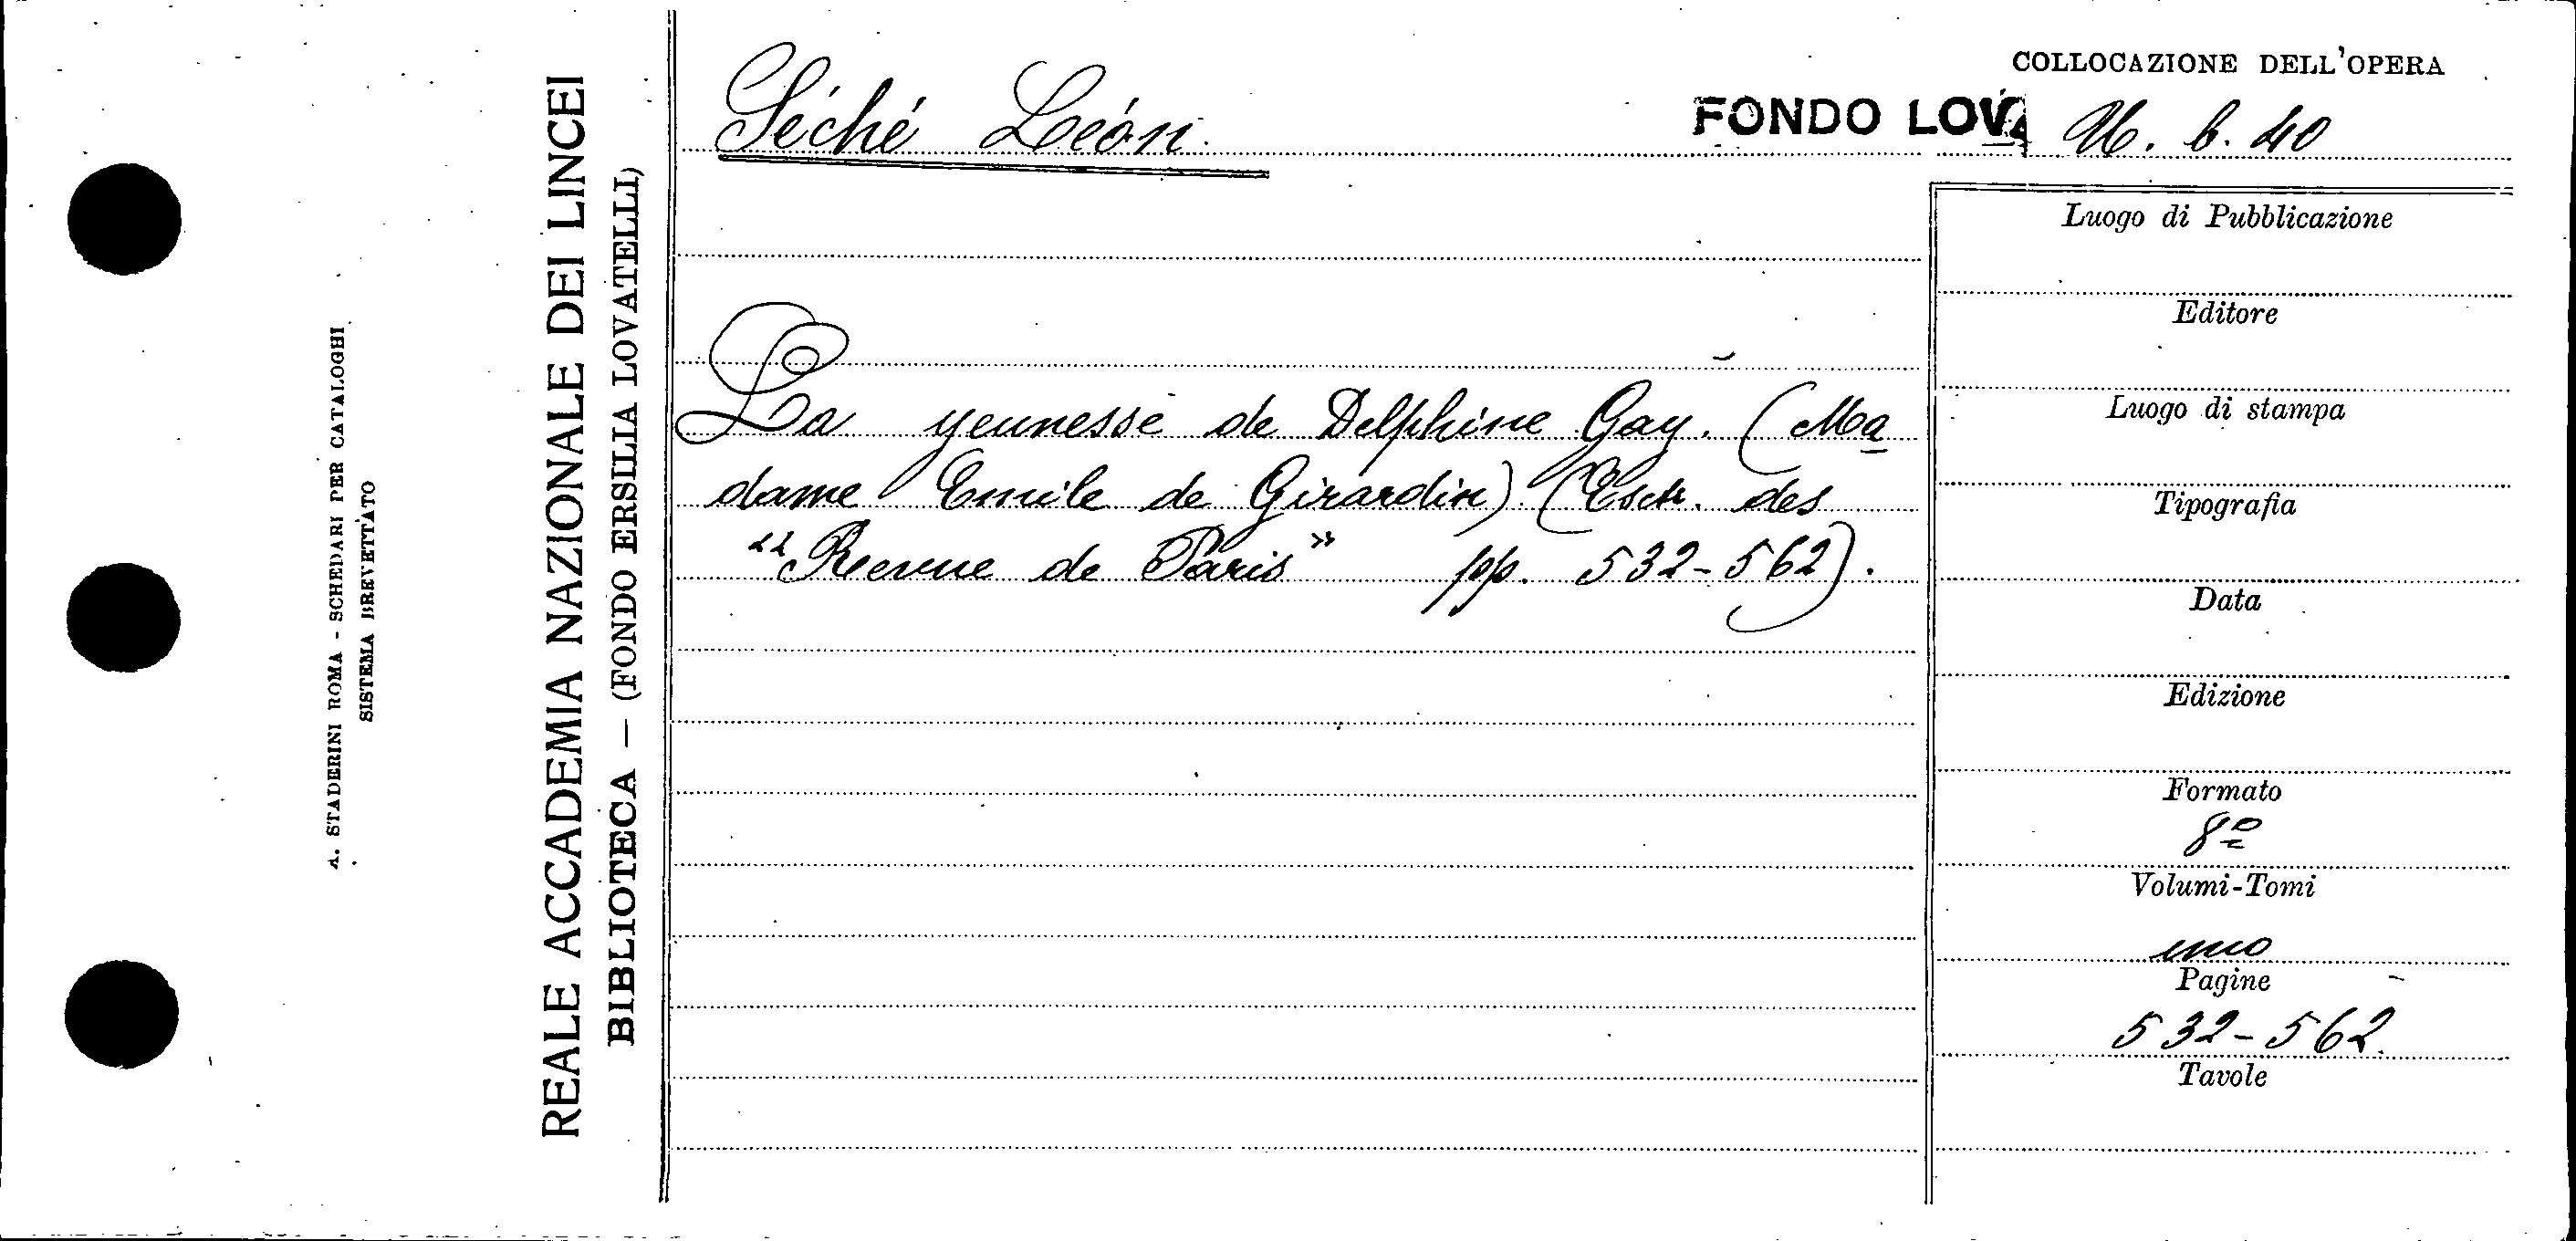 COLLOCAZIONE DELL'OPERA
Séché Léon.
FONDO LOVA
b. 40
La yeunesse de Delphine Gay. (Ma
dame Emile de Girardin) (Estr. des
"Revue de Paris" pp. 532-562).
Luogo di Pubblicazione
Editore
Luogo di stampa
Tipografia
Data
Edizione
Formato
8º
Volumi-Tomi
uno
Pagine
532-562.
Tavole
REALE ACCADEMIA NAZIONALE DEI LINCEI
BIBLIOTECA — (FONDO ERSILIA LOVATELLI)
A. STADERINI ROMA - SCHEDARI PER CATALOGHI
SISTEMA BREVETTATO